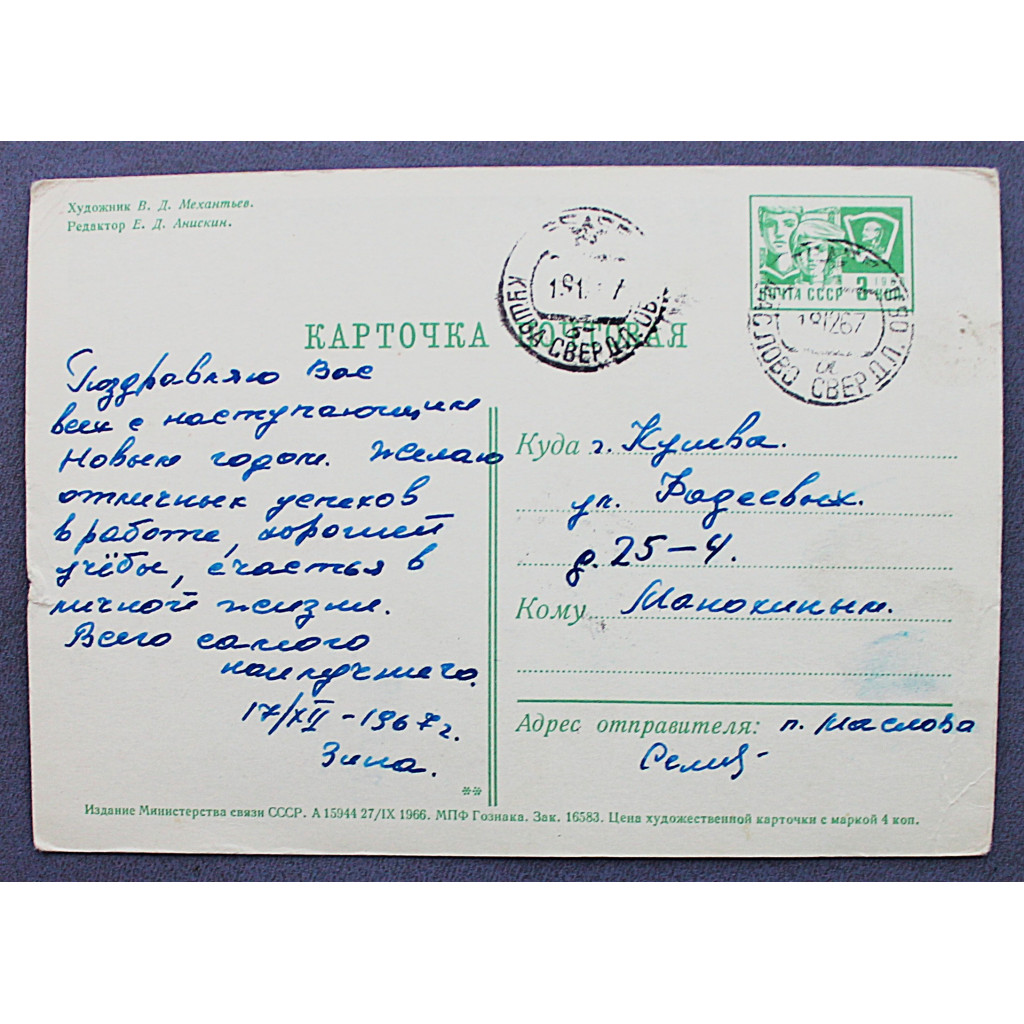 Художник В. Д. Механтьев.
Редактор Е. Д. Анискин.
ПОЧТА СССР 3 КОП
КУШВА СВЕРДЛ.ОБЛ.
МАСЛОВО СВЕРДЛ. ОБЛ
181267
КАРТОЧКА ПОЧТОВАЯ
Поздравляю Вас
всех с наступающим
Новым годом. Желаю
отличных успехов
в работе, хорошей
учёбы, счастья в
личной жизни.
Всего самого
наилучшего.
17/XII - 1967г.
Зина.
Куда г. Кушва.
ул. Фадеевых.
д. 25-4.
Кому Манохиным.
Адрес отправителя: п. Маслова
**
Издание Министерства связи СССР. А 15944 27/IX 1966. МПФ Гознака. Зак. 16583. Цена художественной карточки с маркой 4 коп.